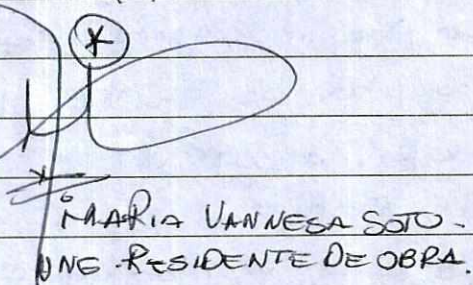 MARIA VANNESA SOTO.
ING. RESIDENTE DE OBRA.